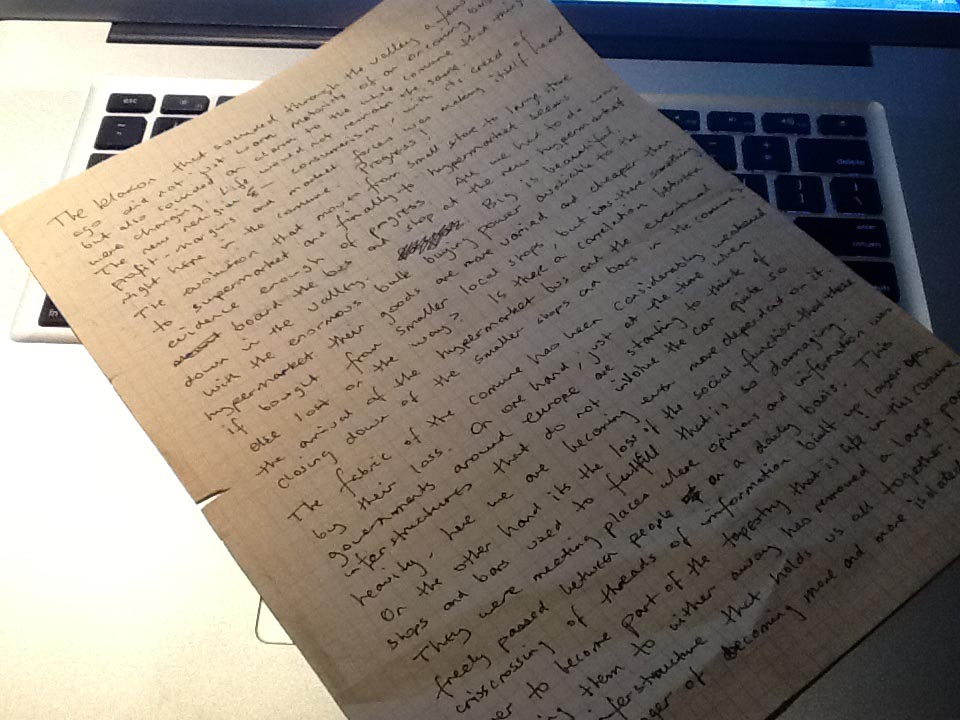 The klaxon that sounded through the valley a few
ago are not just warn motorists of an oncoming bus
but also sounded an alarm to the whole comune that things
were changing. Life would not remain the same.
The new religion - consumerism, with its creed of
profit-margins and market forces was making itself heard
right here in the comune. Progress!
The evolution that moves from small store to large
to supermarket and finally to hypermarket seems
evidence enough of progress. All we have to do was
board the bus and shop at the new hypermarket
down in the valley. Big is beautiful
with the enormous bulk buying power available to the
hypermarket their goods are more varied and cheaper than
if bought from smaller local shops, but was there something
else lost on the way? Is there a correlation between
the arrival of the hypermarket bus and the eventual
closing down of the smaller shops and bars in the comune
The fabric of the comune has been considerably weakened
by their loss. On one hand, just at the time when
governments around europe are starting to think of
inferstructures that do not involve the car quite so
heavily, here we are becoming even more dependent on it.
On the other hand its the loss of the social function that these
shops and bars used to fulfill that is so damaging.
They were meeting places where opinions and information was
freely passed between people on a daily basis. This
crisscrossing of threads of information built up layer upon
to become part of the tapestry that is life in this comune
them to wither away has removed a large
inferstructure that holds us all together
of becoming more and more isolated
esc
delete
enter
return
fn